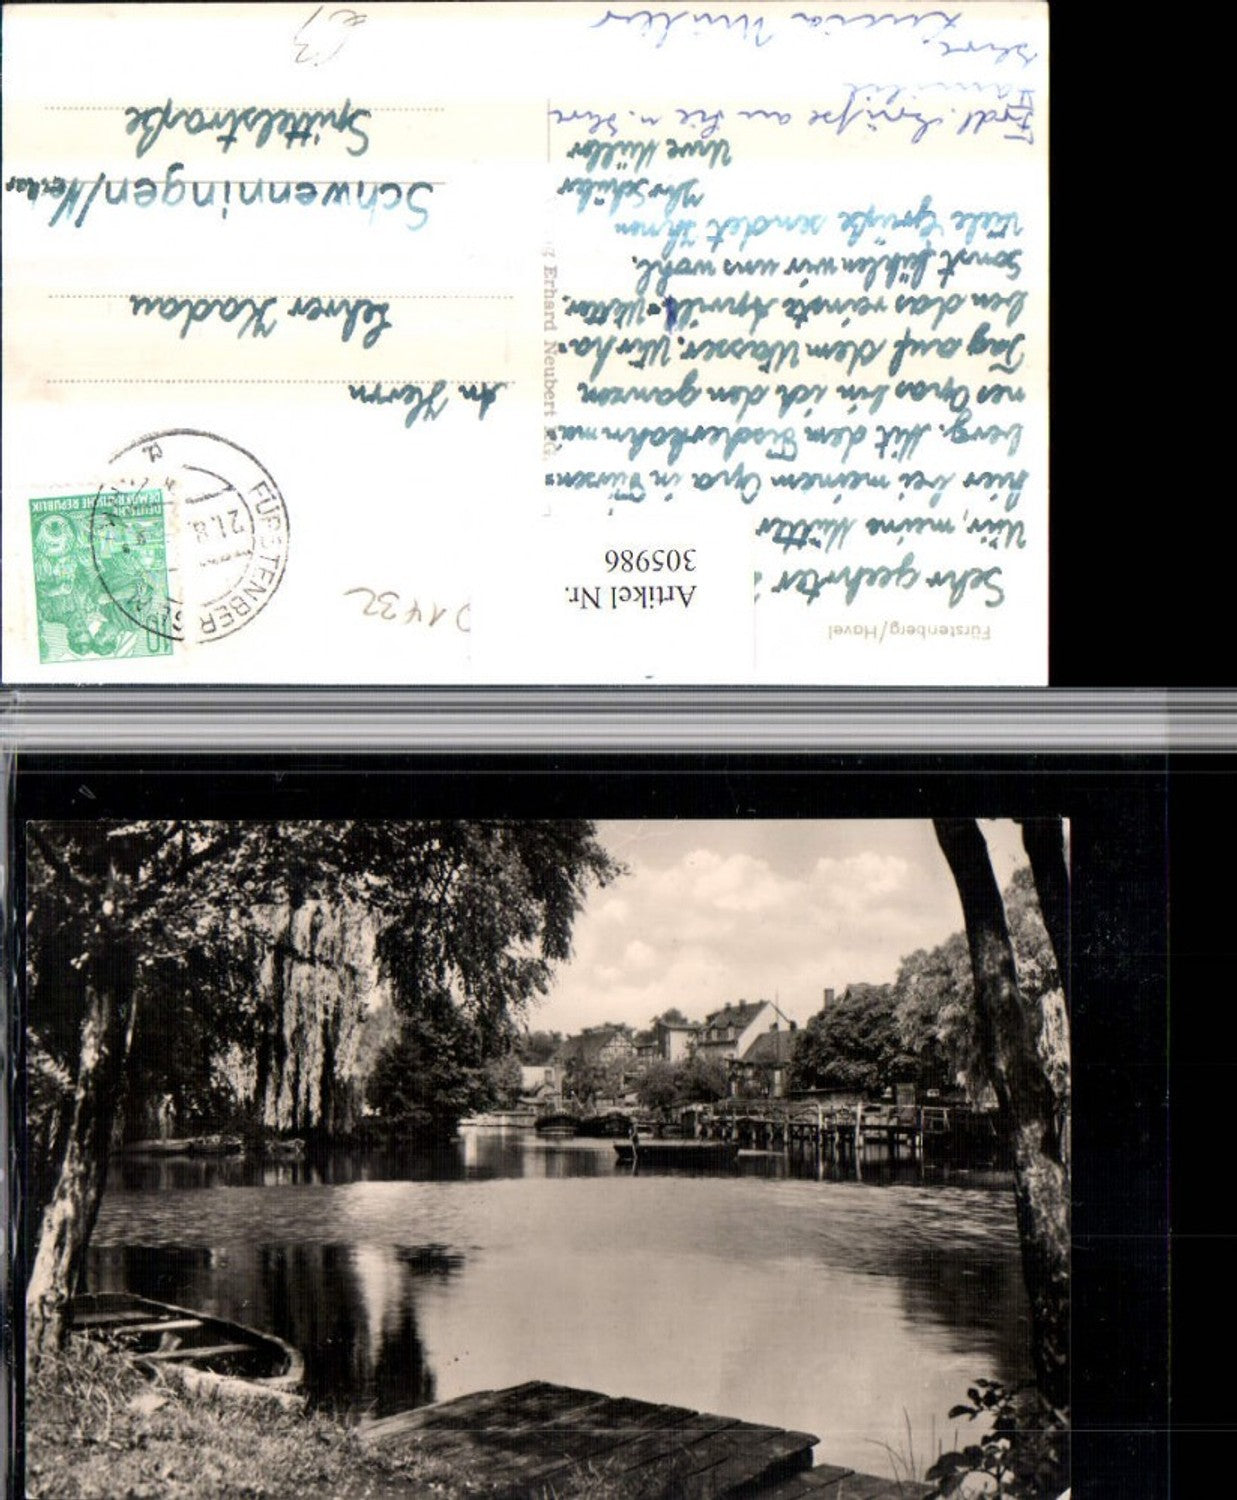 Fürstenberg/Havel
Sehr geehrter
Wir, meine Mutter
hier bei meinem Opa in Fürsten-
berg. Mit dem Fischerkahn mei-
nes Opas bin ich den ganzen
Tag auf dem Wasser. Wir ha-
ben das reinste April-Wetter.
Sonst fühlen wir uns wohl.
Viele Grüße sendet Ihnen
Ihr Schüler
Uwe Müller
Frdl. Grüße an Sie u. Ihre
Familie
Ihre
Müller
Artikel Nr.
305986
Erhard Neubert K.G.
D 1432
10
DEUTSCHE
DEMOKRATISCHE REPUBLIK
FÜRSTENBERG
21.8.
a
An Herrn
Lehrer Kadau
Schwenningen/Neckar
Spittelstraße